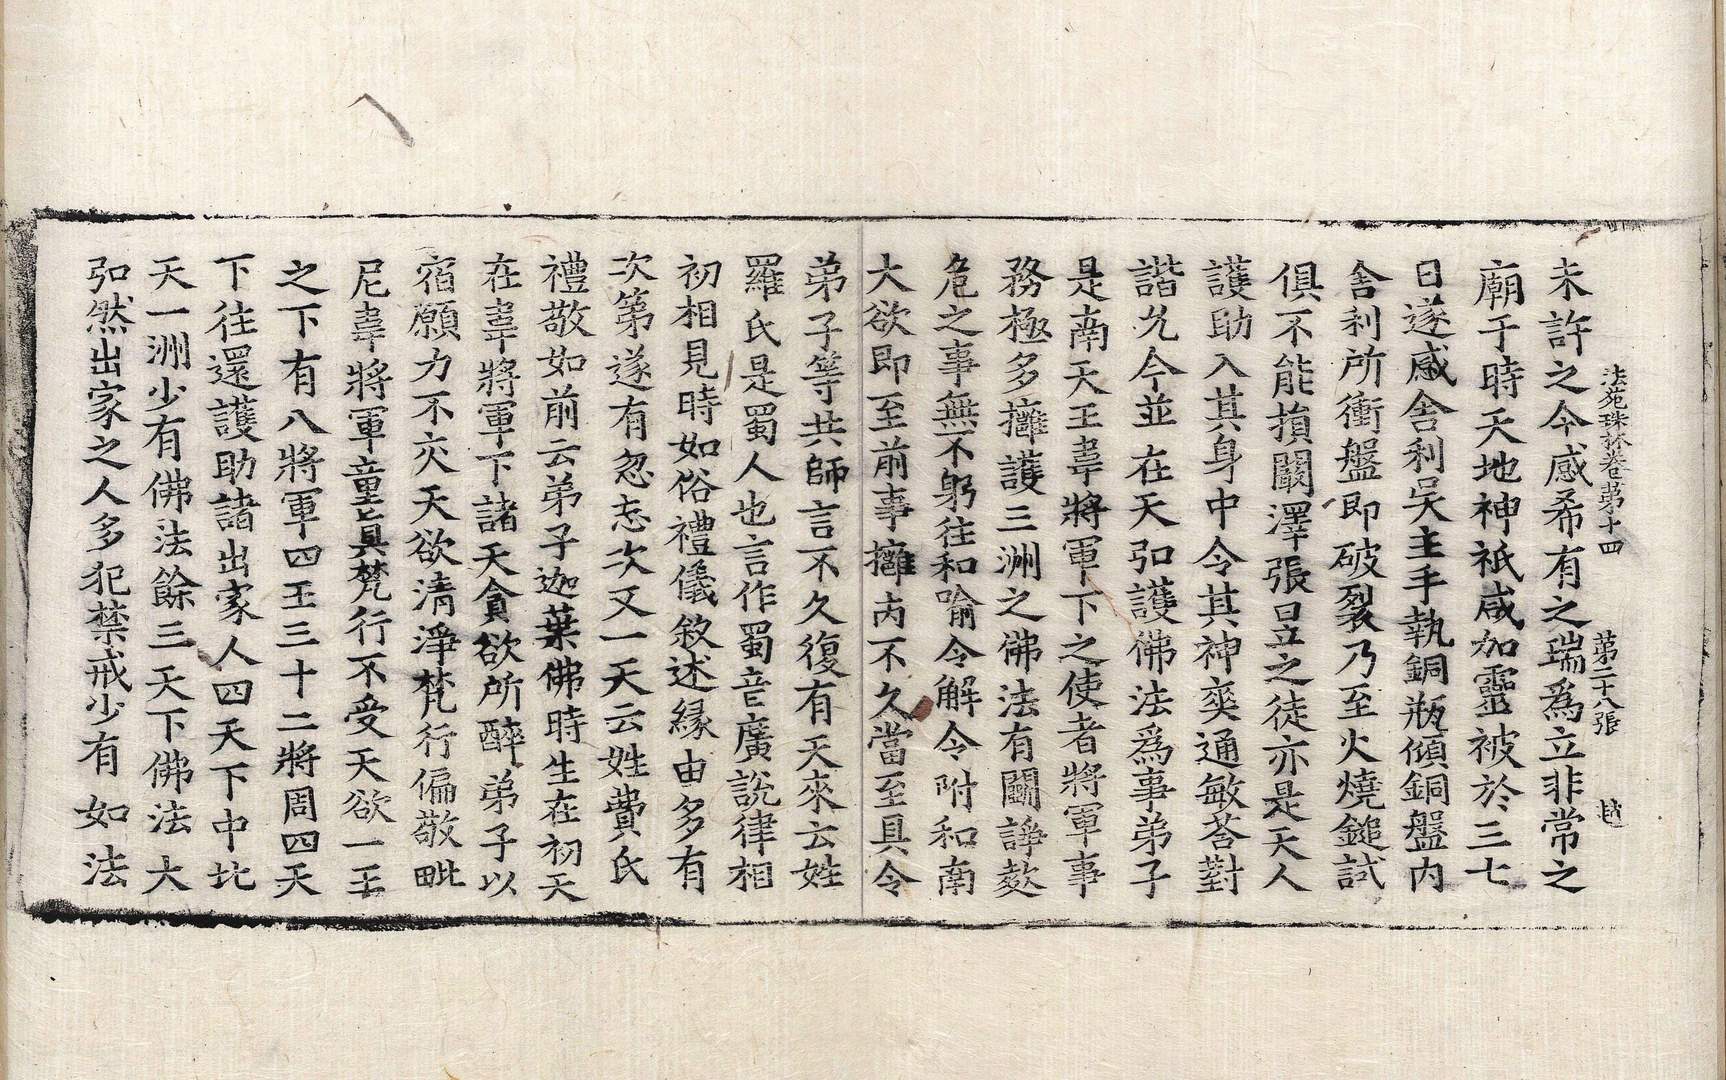 法苑珠林卷第十四　第二十八張
未許之令感希有之瑞為立非常之
廟于時天地神祇咸加靈被於三七
日遂感舍利吳主手執銅瓶傾銅盤內
舍利所衝盤即破裂乃至火燒鎚試
俱不能損闞澤張昱之徒亦是天人
護助入其身中令其神爽通敏荅對
諧允今並在天弘護佛法為事弟子
是南天王韋將軍下之使者將軍事
務極多擁護三洲之佛法有鬪諍𣣋
危之事無不躬往和喻令解令附和南
大欲即至前事擁𠕅不久當至具令
弟子等共師言不久復有天來云姓
羅氏是蜀人也言作蜀音廣說律相
初相見時如俗禮儀敘述緣由多有
次第遂有忽忘次又一天云姓費氏
禮敬如前云弟子迦葉佛時生在初天
在韋將軍下諸天貪欲所醉弟子以
宿願力不交天欲清淨梵行偏敬毗
尼韋將軍童真梵行不受天欲一王
之下有八將軍四王三十二將周四天
下往還護助諸出家人四天下中北
天一洲少有佛法餘三天下佛法大
弘然出家之人多犯禁戒少有如法